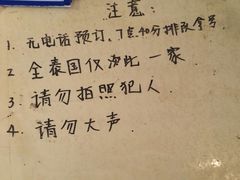 注意:
1. 无电话预订、7点40分排队拿号
2 全泰国仅此一家
3. 请勿拍照犯人
4. 请勿大声